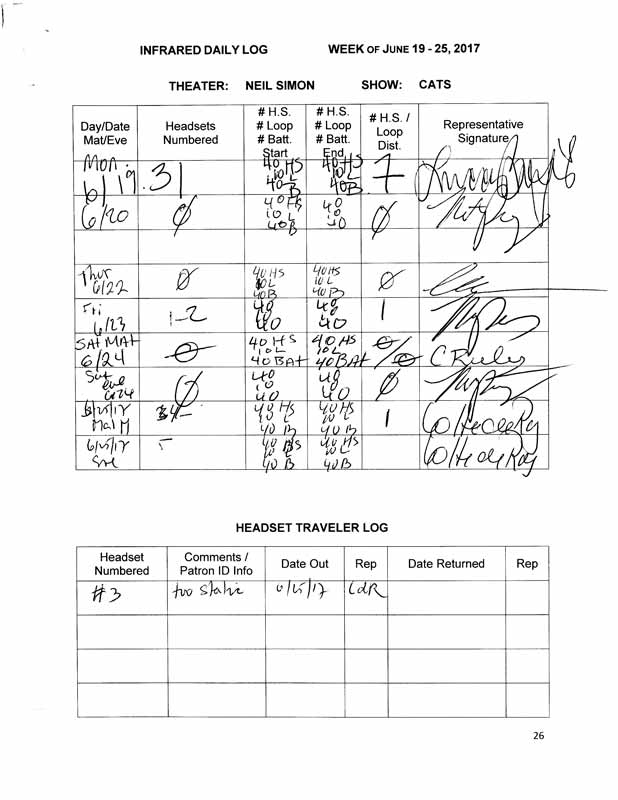 INFRARED DAILY LOG WEEK OF JUNE 19 - 25, 2017
THEATER: NEIL SIMON SHOW: CATS
Day/Date
Mat/Eve
Headsets
Numbered
# H.S.
# Loop
# Batt.
Start
# H.S.
# Loop
# Batt.
End
# H.S. /
Loop
Dist.
Representative
Signature
Mon.
6/19
31
40HS
10L
40B
40HS
10L
40B
6/20
0
40HS
10L
40B
40
10
40
0
Thur
6/22
0
40HS
10L
40B
40HS
10L
40B
0
Fri
6/23
1-2
40
40
40
40
1
SAT MAT
6/24
0
40HS
10L
40BAT
40HS
10L
40BAT
0/0
CRuley
Sat
Eve
6/24
0
40
10
40
40
10
40
0
6/25/17
Mat
40HS
10L
40B
40HS
10L
40B
1
6/25/17
40HS
10L
40B
40HS
10L
40B
HEADSET TRAVELER LOG
Headset
Numbered
Comments /
Patron ID Info
Date Out Rep Date Returned Rep
#3 too static 6/25/17 CdR
26